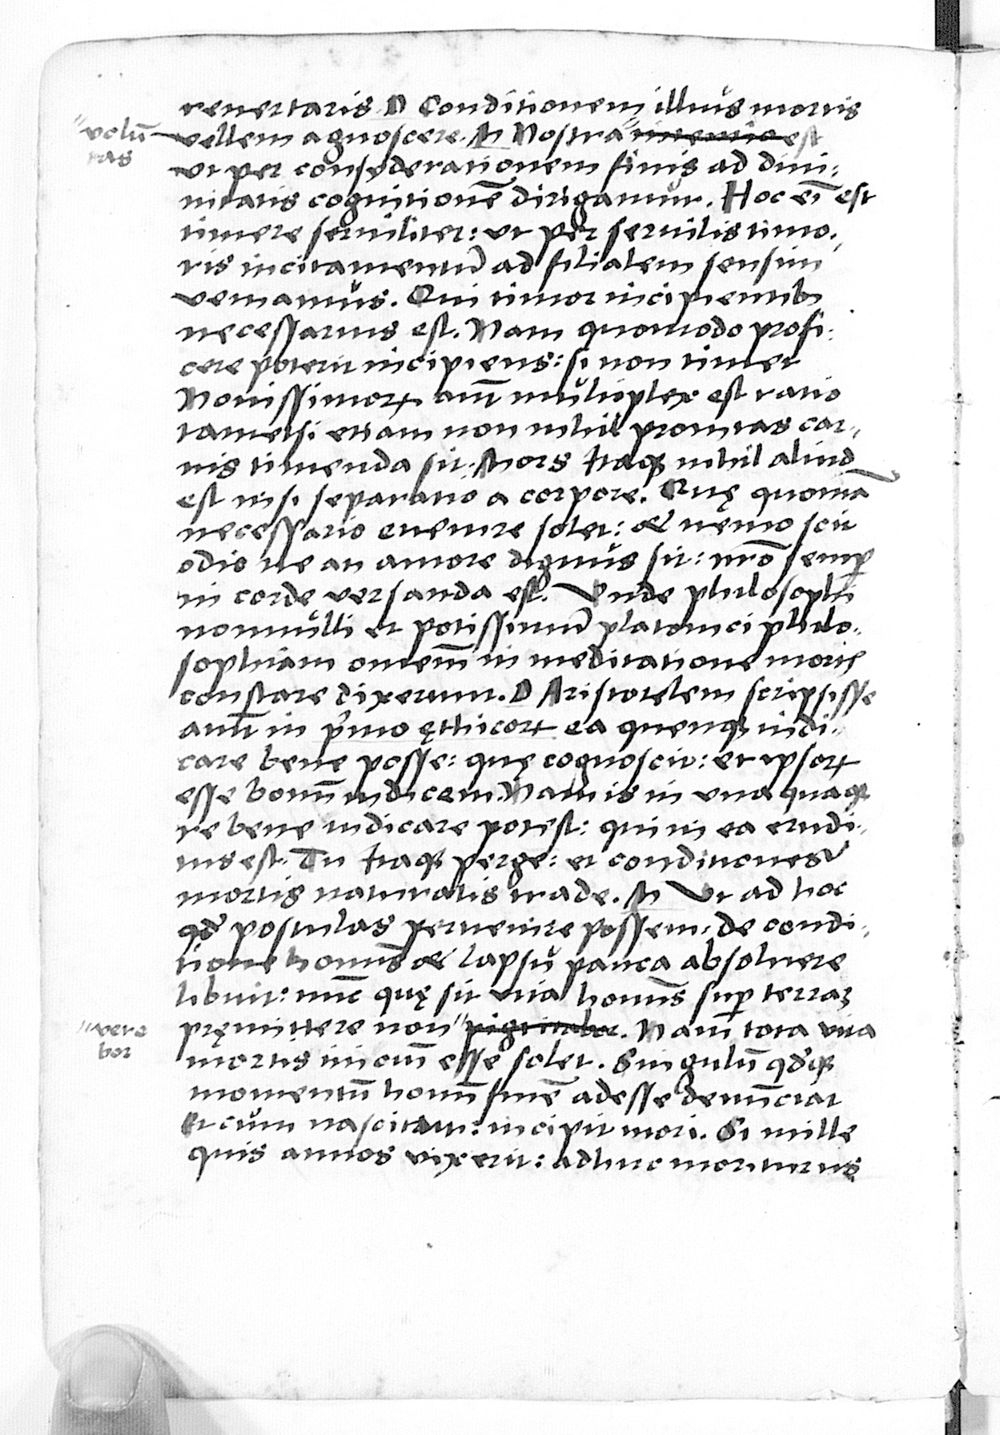 reuertaris D Conditionem illius mortis
"volū
tas
vellem agnoscere. M Nostra" intentio est
vt per consyderationem finis ad diui-
nitatis cognitionē dirigamur. Hoc eī est
timere seruiliter: vt per seruilis timo-
ris incitamentū ad filialem sensim
veniamus. Qui timor incipientib
necessarius est. Nam quomodo profi-
cere poterit incipiens: si non timet
Nouissimoꝝ aūt multiplex est ratio
tametsi etiam non nihil promtas car-
nis timenda sit. Mors itaqꝫ nihil aliud
est nisi separatio a corpore. Quę quoniā
necessario euenire solet: & nemo scit
odio ne an amore dignus sit: nrō semp
in corde versanda est. Vnde philosophi
nonnulli et potissimū platonici philo-
sophiam omnem̄ in meditatione mortis
constare dixerunt. D Aristotelem scripsisse
aiūt in p̄mo ęthicoꝝ ea quenqꝫ iudi-
care bene posse: quę cognoscit: et ipsoꝝ
esse bonū iudicem. Nam is in vna quaqꝫ
re bene iudicare potest: qui in ea erudi-
tus est. Tu itaqꝫ perge: et conditiones
mortis naturalis trade. M Vt ad hoc
qd̄ postulas peruenire possem, de condi-
tione homīs & lapsu pauca absoluere
libuit: nūc quę sit vita homīs sup terraꝫ
"vere
bor
pręmittere non" pigritabor. Nam tota vita
mortis initiū esse solet. Singulū qd̄qꝫ
momentū homī finē adesse denūciat
Et cum nascitur: incipit mori. Si mille
quis annos vixerit: adhuc moriturus